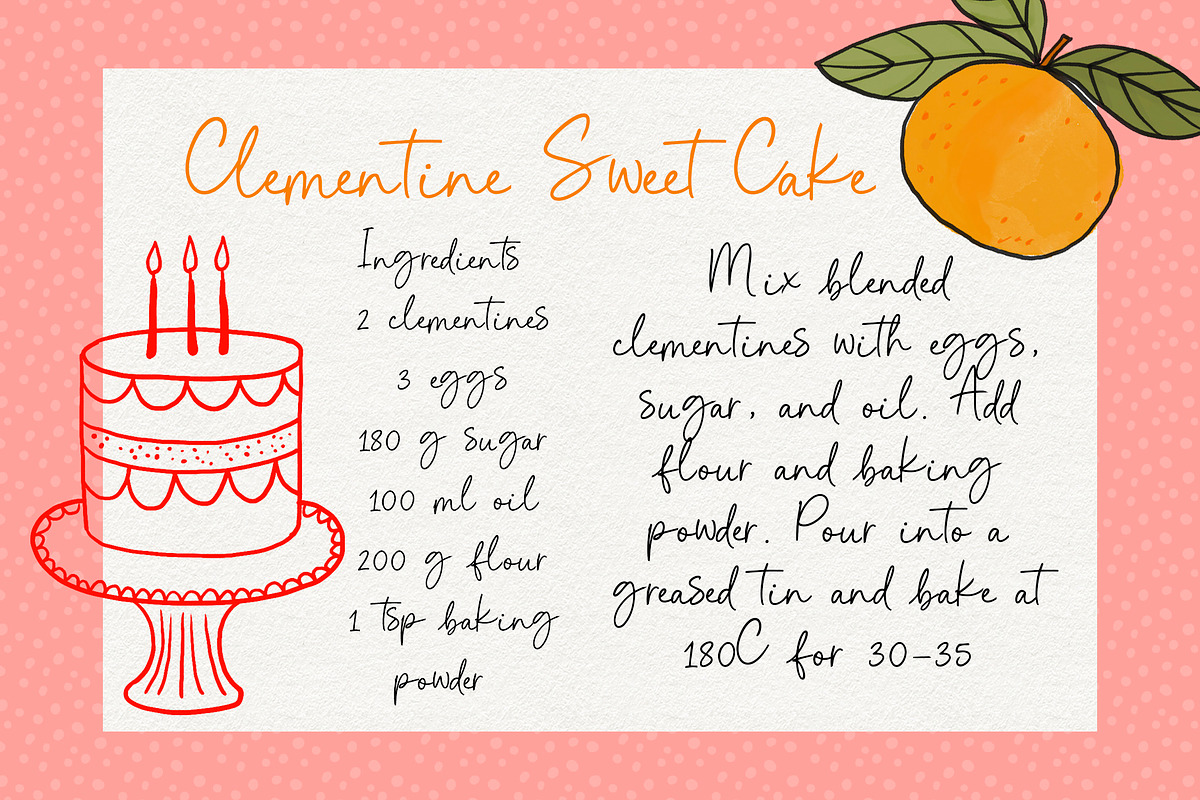 Clementine Sweet Cake
Ingredients
2 clementines
3 eggs
180 g sugar
100 ml oil
200 g flour
1 tsp baking
powder
Mix blended
clementines with eggs,
sugar, and oil. Add
flour and baking
powder. Pour into a
greased tin and bake at
180C for 30-35